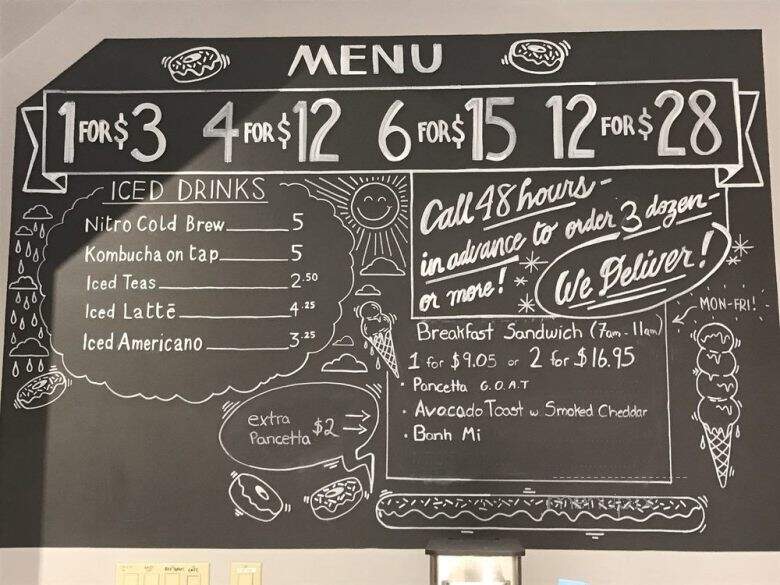 MENU
1 FOR $3 4 FOR $12 6 FOR $15 12 FOR $28
ICED DRINKS
Nitro Cold Brew 5
Kombucha on tap 5
Iced Teas 2.50
Iced Lattē 4.25
Iced Americano 3.25
extra
Pancetta $2
Call 48 hours -
in advance to order 3 dozen -
or more!
We Deliver!
MON-FRI!
Breakfast Sandwich (7am-11am)
1 for $9.05 or 2 for $16.95
• Pancetta G.O.A.T
• Avocado Toast w Smoked Cheddar
• Banh Mi